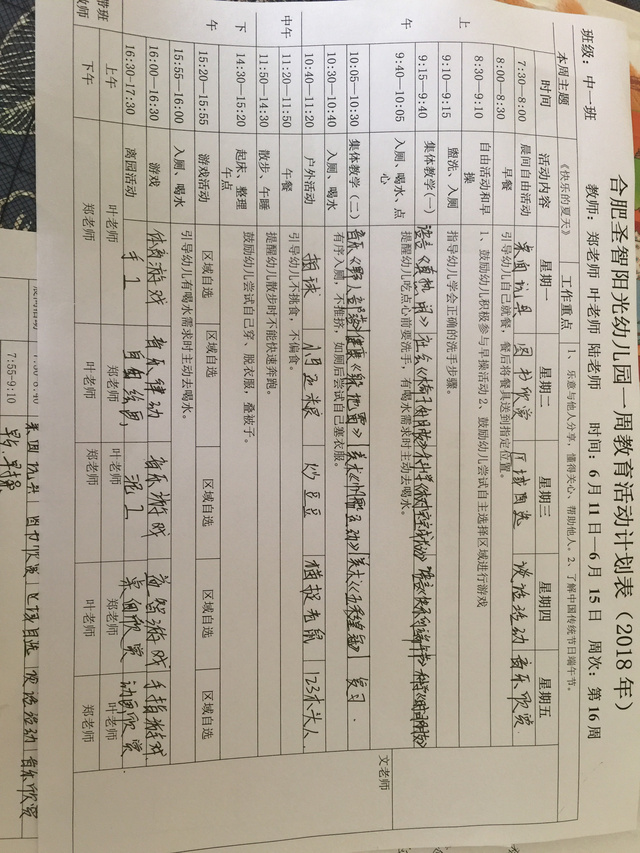 合肥圣智阳光幼儿园一周教育活动计划表（2018年）
班级：中一班 教师：郑老师 叶老师 陆老师 时间：6月11日—6月15日 周次：第16周
本周主题 《快乐的夏天》 工作重点 1、乐意与他人分享，懂得关心、帮助他人。2、了解中国传统节日端午节。
时间 活动内容 星期一 星期二 星期三 星期四 星期五
上午
7:30—8:00 晨间自由活动 桌面玩具 图书欣赏 区域自选 谈话活动 音乐欣赏
8:00—8:30 早餐 引导幼儿自己就餐，餐后将餐具送到指定位置。
8:30—9:10 自由活动和早操 1、鼓励幼儿积极参与早操活动 2、鼓励幼儿尝试自主选择区域进行游戏
9:10—9:15 盥洗、入厕 指导幼儿学会正确的洗手步骤。
9:15—9:40 集体教学(一) 语言 社会
9:40—10:05 入厕、喝水、点心 提醒幼儿吃点心前要洗手，有喝水需求时主动去喝水。
10:05—10:30 集体教学（二） 音乐 健康 美术 美术 复习
10:30—10:40 入厕、喝水 有序入厕，不推挤，如厕后尝试自己塞衣服。
10:40—11:20 户外活动 拍球 炒豆豆 猫捉老鼠 123木头人
中午
11:20—11:50 午餐 引导幼儿不挑食，不偏食。
11:50—14:30 散步、午睡 提醒幼儿散步时不能快速奔跑。
下午
14:30—15:20 起床、整理 午点 鼓励幼儿尝试自己穿、脱衣服，叠被子。
15:20—15:55 游戏活动 区域自选 区域自选 区域自选 区域自选 区域自选
15:55—16:00 入厕、喝水 引导幼儿有喝水需求时主动去喝水。
16:00—16:30 游戏 体育游戏 音乐律动 音乐游戏 益智游戏 手指游戏
16:30-17:30 离园活动 手工 泥工 桌面欣赏 动画欣赏
带班教师 上午 叶老师 郑老师 叶老师 郑老师 叶老师
下午 郑老师 叶老师 郑老师 叶老师 郑老师
文老师
桌面玩具 图书欣赏 区域自选 谈话活动 音乐欣赏
7:55—9:10